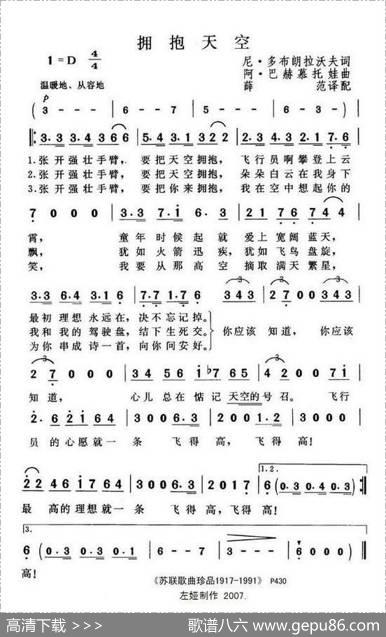 拥抱天空
1=D 4/4
尼·多布朗拉沃夫词
阿·巴赫慕托娃曲
薛 范译配
温暖地、从容地
p
3 - - - 6 - - 7 6 - - 7 3 - - -
3·3 3·4 3 6 6 3·3 4·3 3 2 2 3·3 2·1 7·6
1.张开强壮手臂，要把天空拥抱，飞行员啊攀登上云
2.张开强壮手臂，要把天空拥抱，朵朵白云在我身下
3.张开强壮手臂，要把你来拥抱，我在空中想起你的
7 0 0 0 3·3 7·1 6·3 2·1 7 6 7 7 4
霄， 童年时候起就爱上宽阔蓝天，
飘， 犹如火箭迅疾，犹如飞鸟盘旋，
笑， 我要从那高空摘取满天繁星，
3·3 6·4 3·1 6 7·1 7·1 7 6 3 4 3 2 7 0 0 3 4 3
最初理想永远在，决不忘记掉。
我和我的驾驶盘，结下生死交。你应该知道，你应该
为你串成诗一首，向你问安好。
2 7 0 0 0 1 3 4 5 6 5 4 3 4 5 4 0 2 0 4
知道， 心儿总在惦记天空的号召。飞行
2·6 2·1 7 6 4 3 0 0 6·3 2 0 0 1·2 6 0 0 0
员的心愿就一条 飞得高，飞得高！
2 2 4 6 1 7 6 4 3 0 0 6·3 2 0 1 7 6 (0·3 0·4 0·3)
1.2.
最高的理想就一条 飞得高，飞得高！
3.
6 (0·3 0·3 0 1 0·3 0·3 0 1 0·3 0·3 0 1 6 0 0 0)
高！
《苏联歌曲珍品1917-1991》 P430
左娅制作 2007.
高清下载 >> 歌谱八六 www.gepu86.com